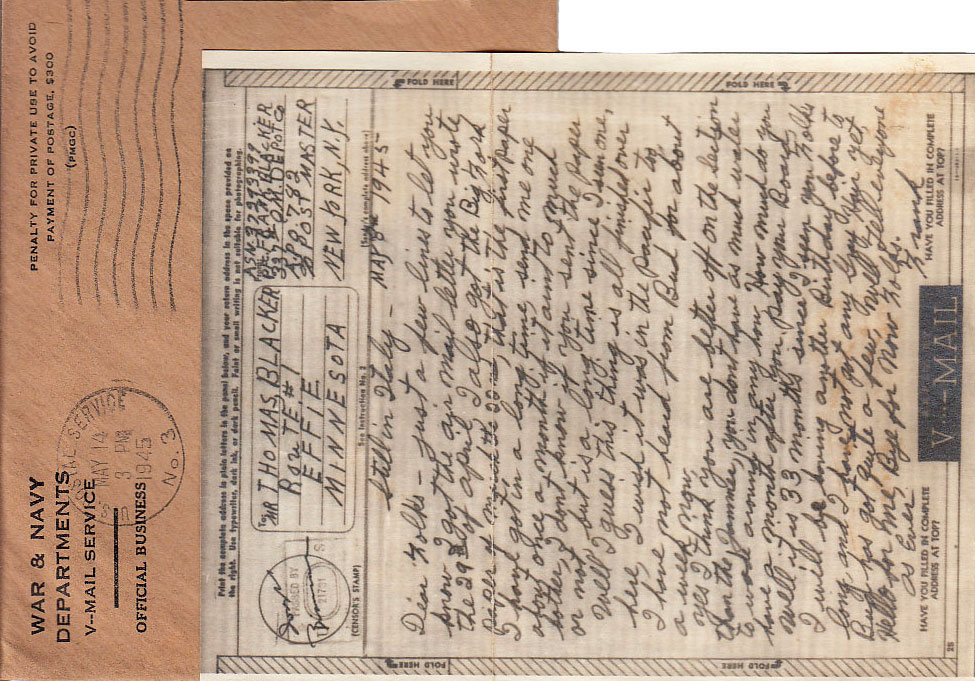 PENALTY FOR PRIVATE USE TO AVOID
PAYMENT OF POSTAGE, $300
(PMGC)
WAR & NAVY
DEPARTMENTS
V--MAIL SERVICE
OFFICIAL BUSINESS
POSTAL SERVICE
MAY 14
3 PM
1945
No. 3
FOLD HERE
FOLD HERE
Print the complete address in plain letters in the panel below, and your return address in the space provided on
the right. Use typewriter, dark ink, or dark pencil. Faint or small writing is not suitable for photographing.
To: MR THOMAS BLACKER
ROUTE #1
EFFIE
MINNESOTA
APO 782
% POST MASTER
NEW YORK, N.Y.
PASSED BY
(CENSOR'S STAMP)
See Instruction No. 2
(Sender's complete address above)
MAY 6 1945
Still in Italy —
Dear Folks – just a few lines to let you
know I got the air mail letter you wrote
the 29 of April I also got the Big Fork
that is the first paper
I have got in a long time send me one
about once a month if it aint to much
bother, I dont know if you sent the paper
or not but it is a long time since I seen one,
Well I guess this thing is all finished over
here I wish it was in the Pacific to
I have not heard from Bud for about
a week now
yes I think you are better off on the section
than the you dont have as much water
to wade around in any how How much do you
have a month after you pay your Board
Well it is 33 months since I seen you Folks
I will be having another Birthday before to
long and I have not any boy Hair yet,
Buff has got quite a few Well Tell everyone
Hello for me, Bye for now Folks.
as Ever
Frank
HAVE YOU FILLED IN COMPLETE
ADDRESS AT TOP?
V···—MAIL
HAVE YOU FILLED IN COMPLETE
ADDRESS AT TOP?
FOLD HERE
FOLD HERE